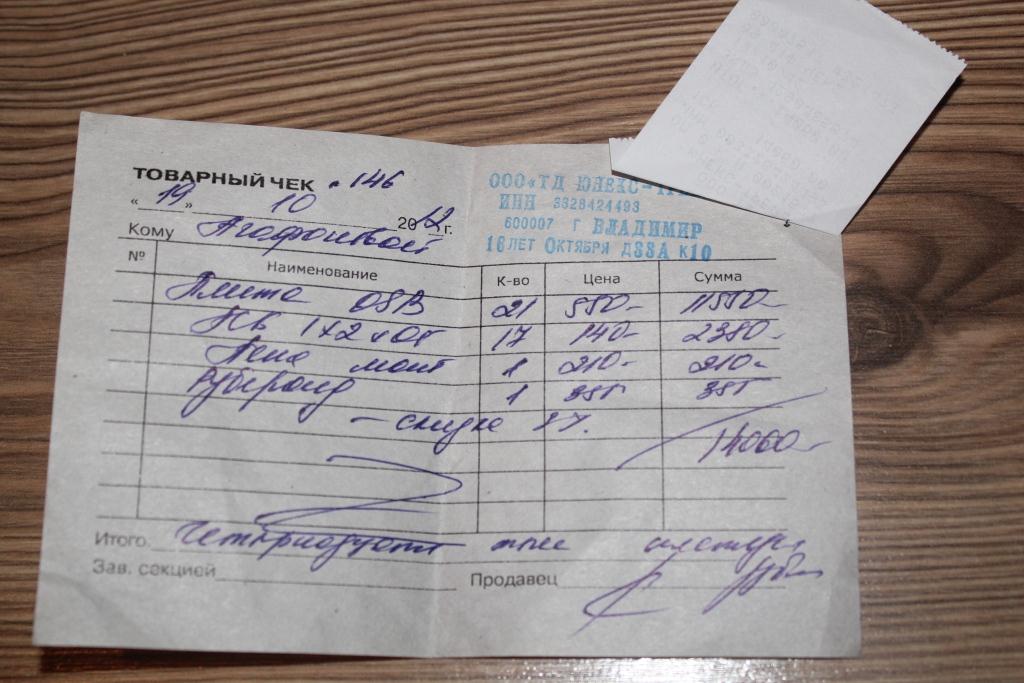 ТОВАРНЫЙ ЧЕК 146
"19" 10 2012 г.
ООО «ТД ЮЛЕКС-
ИНН 3328424493
600007 г ВЛАДИМИР
16 ЛЕТ ОКТЯБРЯ Д33А К10
Кому Агафоновой
№ Наименование К-во Цена Сумма
Плита OSB 21 550- 11550-
17 140- 2380-
Пена монт 1 210- 210-
Рубероид 1 385 385
- скидка 3%.
14060-
Итого Четырнадцать тыс шестьдес
Зав. секцией Продавец руб